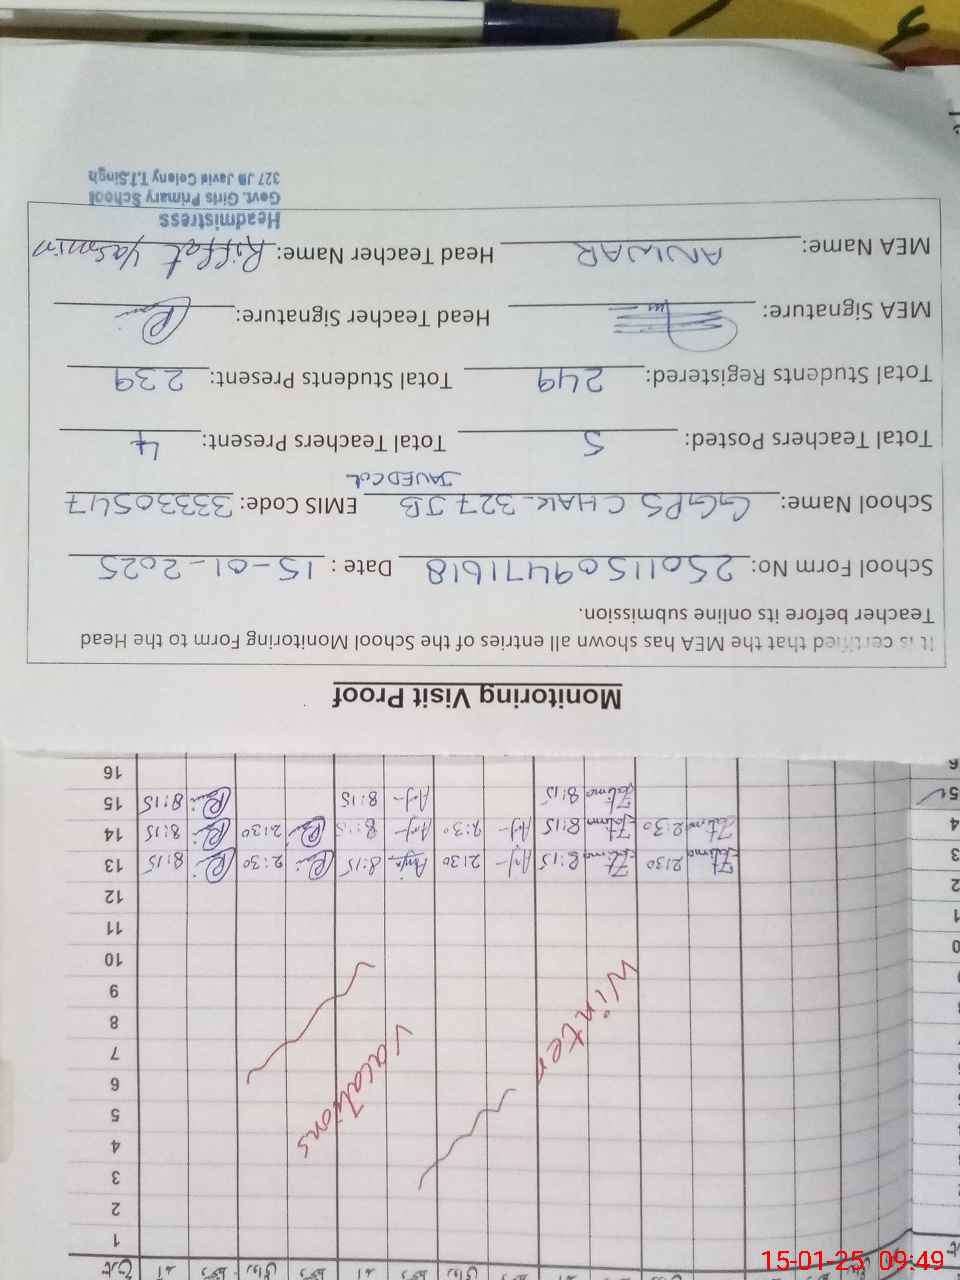 Monitoring Visit Proof
It is certified that the MEA has shown all entries of the School Monitoring Form to the Head
Teacher before its online submission.
School Form No: 25011509471618 Date : 15-01-2025
School Name: GGPS CHAK 327 JB JAVED COL EMIS Code: 33330547
Total Teachers Posted: 5 Total Teachers Present: 4
Total Students Registered: 249 Total Students Present: 239
MEA Signature: Head Teacher Signature:
MEA Name: ANWAR Head Teacher Name: Riffat Yasmin
Headmistress
Govt. Girls Primary School
327 JB Javid Colony T.T.Singh
1
2
3
4
5
6
7
8
9
10
11
12
13 8:15 2:30 8:15 2:30 8:15 2:30
14 8:15 2:30 8:15 2:30 8:15 2:30
15 8:15 8:15 8:15
16
Winter
Vacations
15-01-25 09:49